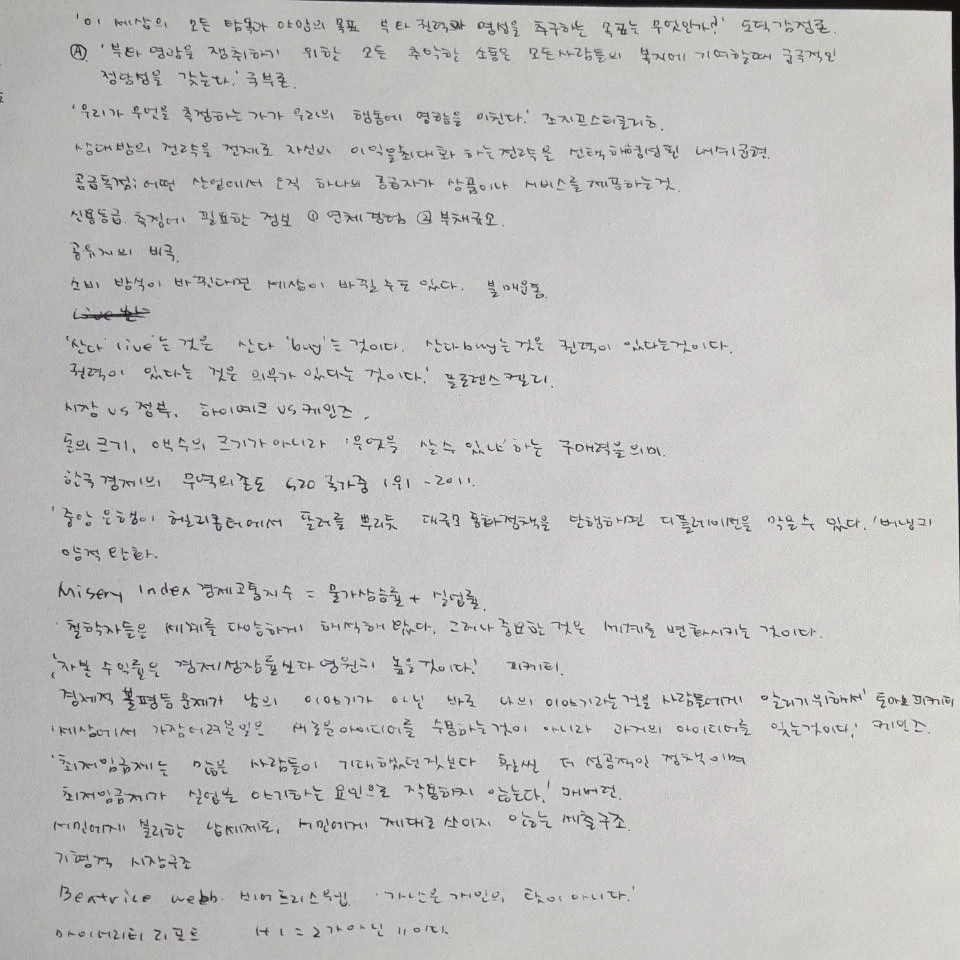 '이 세상의 모든 탐욕과 야망의 목표 부와 권력과 명성을 추구하는 목표는 무엇인가?' 도덕감정론
Ⓐ. '부와 영광을 쟁취하기 위한 모든 추악한 소동은 모든사람들의 복지에 기여할때 궁극적인
정당성을 갖는다.' 국부론.
'우리가 무엇을 측정하는가가 우리의 행동에 영향을 미친다.' 조지프스티글리츠.
상대방의 전략을 전제로 자신의 이익을최대화 하는전략을 선택해형성된 내쉬균형.
공급독점; 어떤 산업에서 오직 하나의 공급자가 상품이나 서비스를 제공하는것.
신용등급 측정에 필요한 정보 ① 연체경험 ② 부채규모.
공유지의 비극.
소비 방식이 바뀐다면 세상이 바뀔수도 있다. 불매운동
'산다 'live'는 것은 산다 'buy'는 것이다. 산다buy는 것은 권력이 있다는것이다.
권력이 있다는 것은 의무가 있다는 것이다.' 플로렌스켈리.
시장 vs 정부, 하이에크 vs 케인즈.
돈의 크기, 액수의 크기가 아니라 '무엇을 살수 있나' 하는 구매력을의미.
한국 경제의 무역의존도 G20 국가중 1위 - 2011.
'중앙 은행이 헬리콥터에서 달러를 뿌리듯 대규모 통화정책을 단행하면 디플레이션을 막을수 있다.' 버냉키
양적 완화.
Misery Index 경제고통지수 = 물가상승률 + 실업률.
'철학자들은 세계를 다양하게 해석해 왔다. 그러나 중요한 것은 세계를 변화시키는 것이다.
'자본 수익률은 경제성장률보다 영원히 높을것이다!' 피케티.
경제적 불평등 문제가 남의 이야기가 아닌 바로 나의 이야기라는것을 사람들에게 알리기위해서' 토마 피케티
'세상에서 가장어려운일은 새로운아이디어를 수용하는것이 아니라 과거의 아이디어를 잊는것이다.' 케인즈.
'최저임금제는 많은 사람들이 기대했던것보다 훨씬 더 성공적인 정책이며
최저임금제가 실업을 야기하는 요인으로 작용하지 않는다.' 캐머런.
서민에게 불리한 납세제도, 서민에게 제대로 쓰이지 않는 세출구조.
기형적 시장구조
Beatrice webb. 비어트리스웹 '가난은 개인의 탓이 아니다.'
마이너리티 리포트 1+1=2가아닌 11이다.